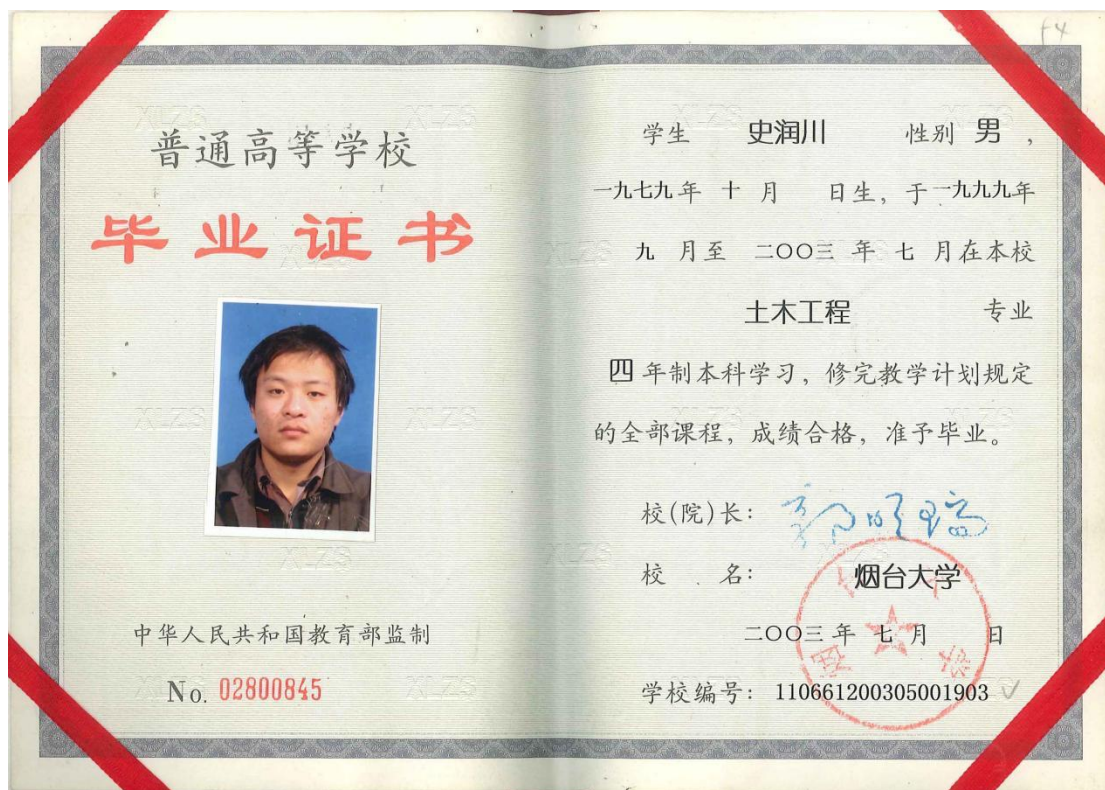 54
普通高等学校
毕业证书
中华人民共和国教育部监制
No. 02800845
学生 史润川 性别 男,
一九七九年 十 月 日生, 于一九九九年
九 月至 二〇〇三 年 七 月在本校
土木工程 专业
四 年制本科学习, 修完教学计划规定
的全部课程, 成绩合格, 准予毕业。
校(院)长: 郭明瑞
校 名: 烟台大学
二〇〇三年 七 月 日
学校编号: 110661200305001903
烟台大学
XLZS